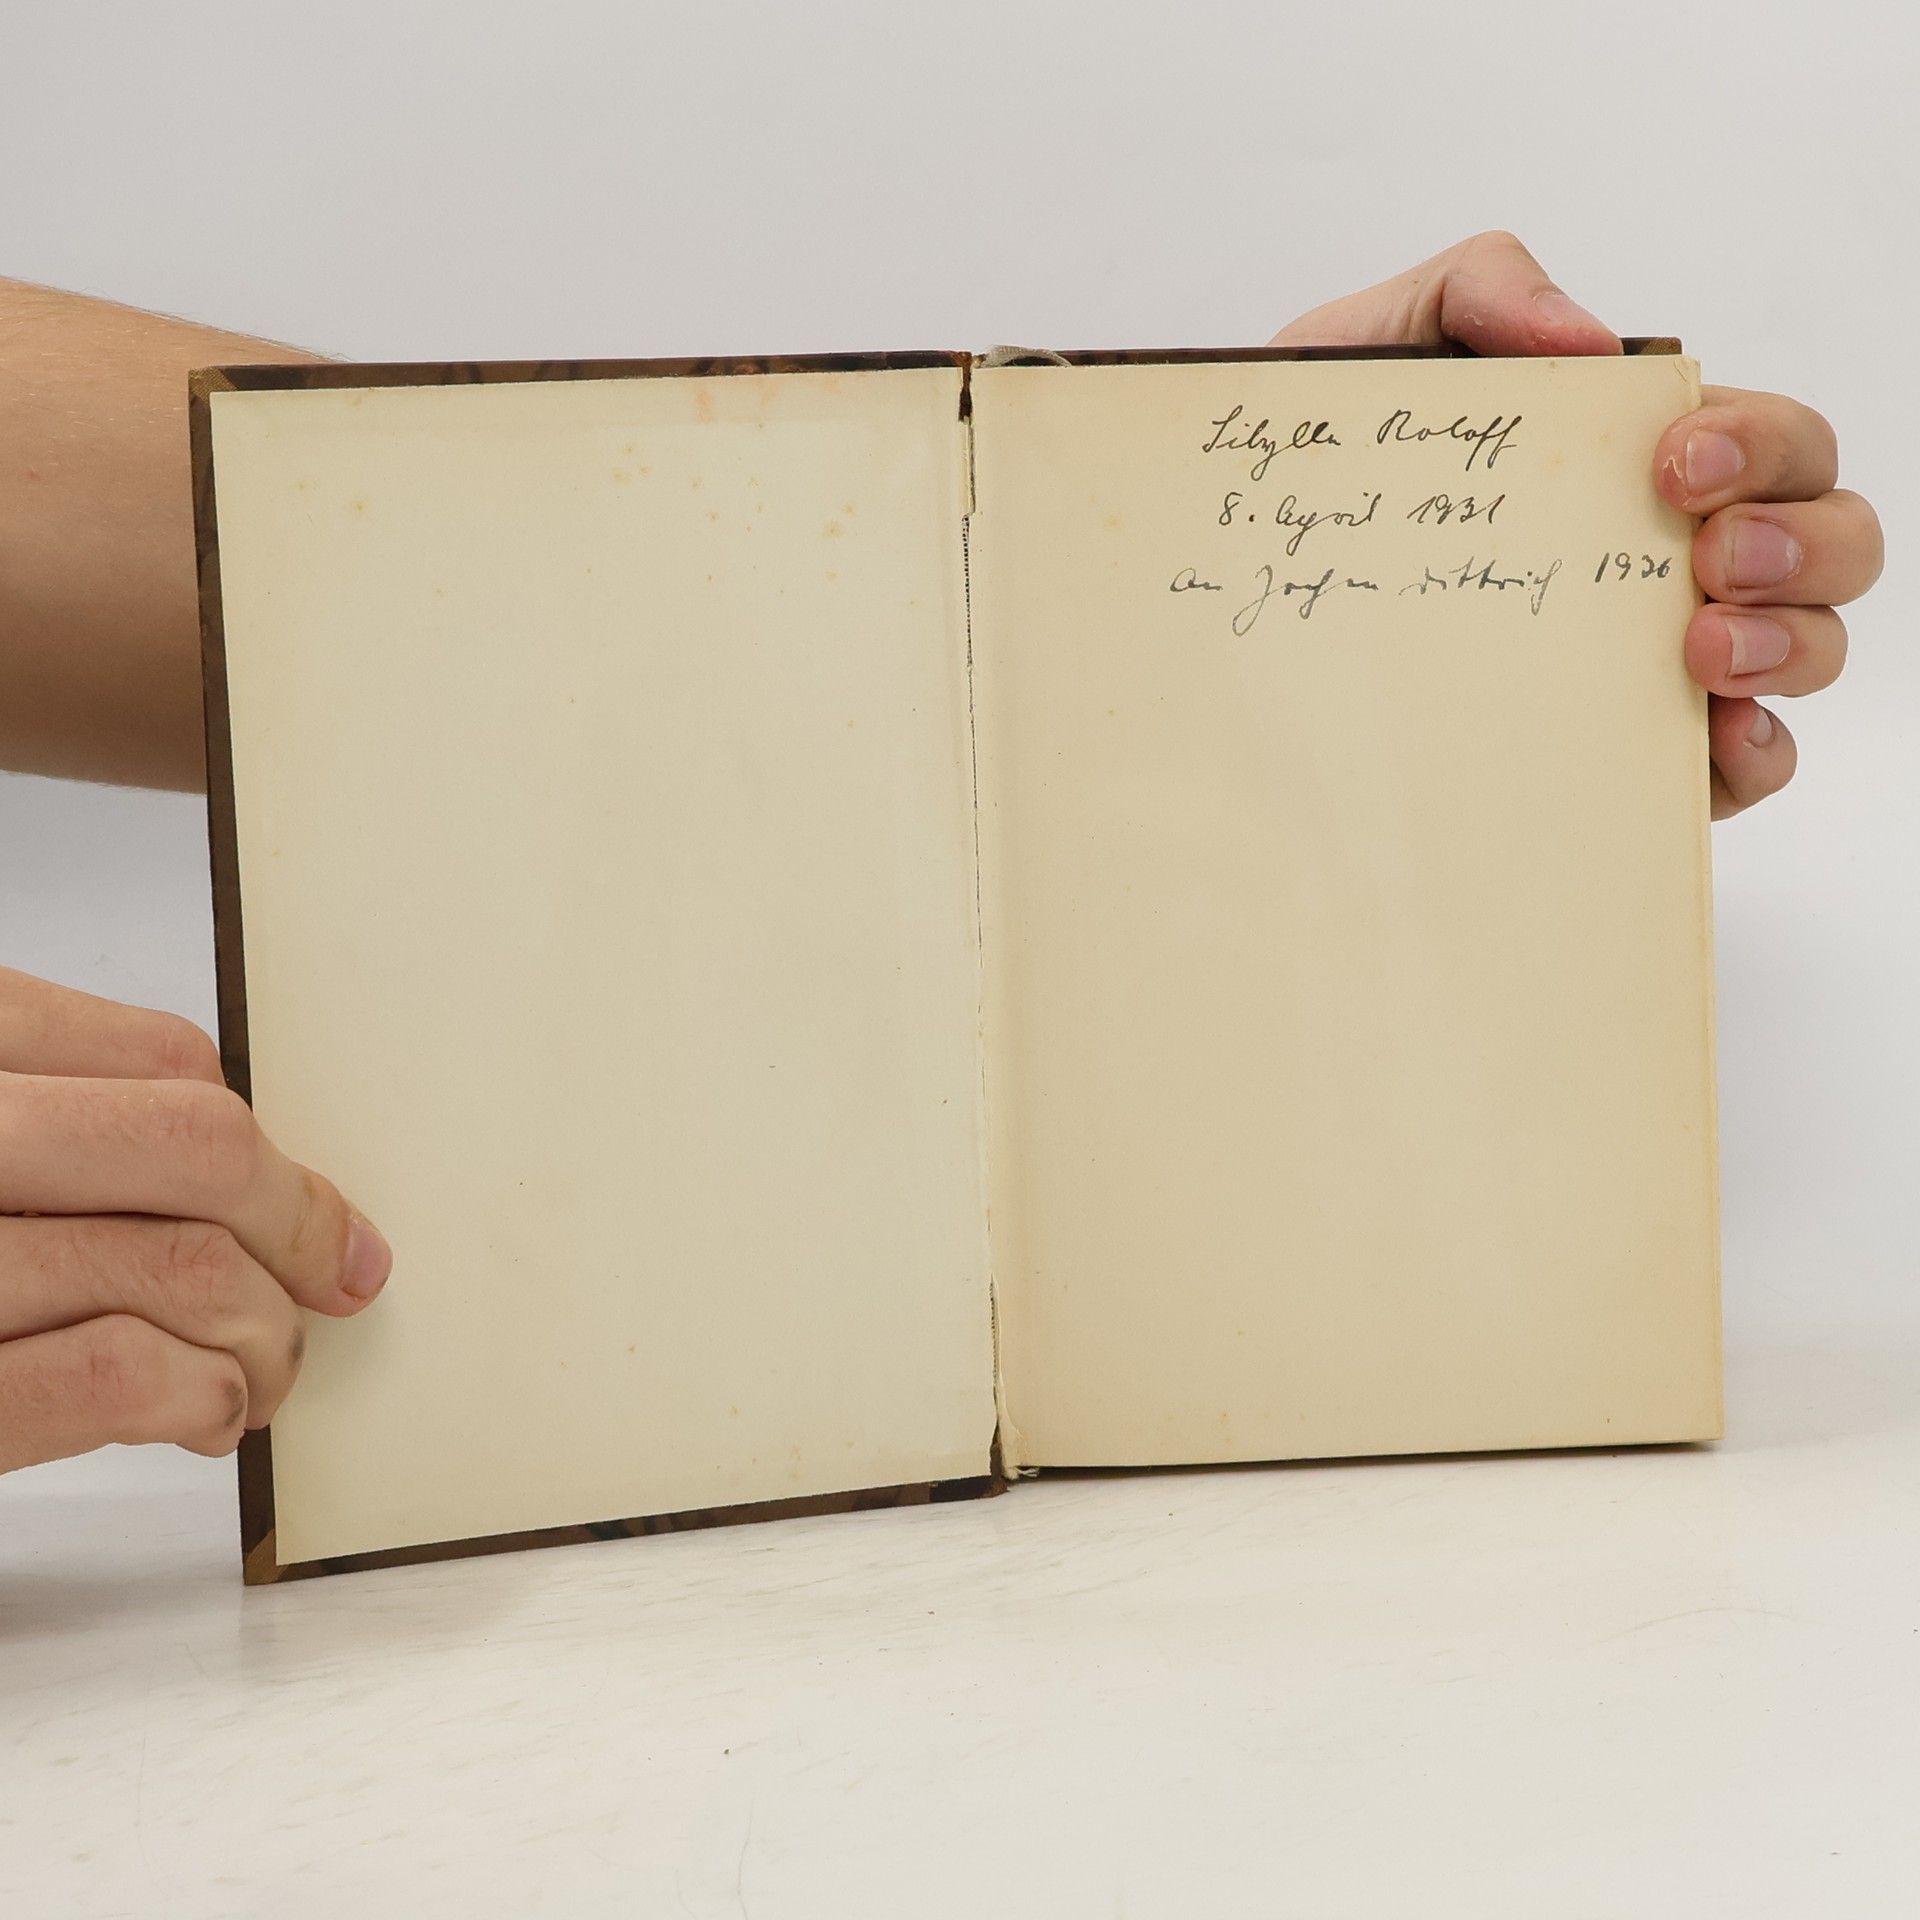 Sibylle Roloff
8. April 1931
An Jochen Dittrich 1936